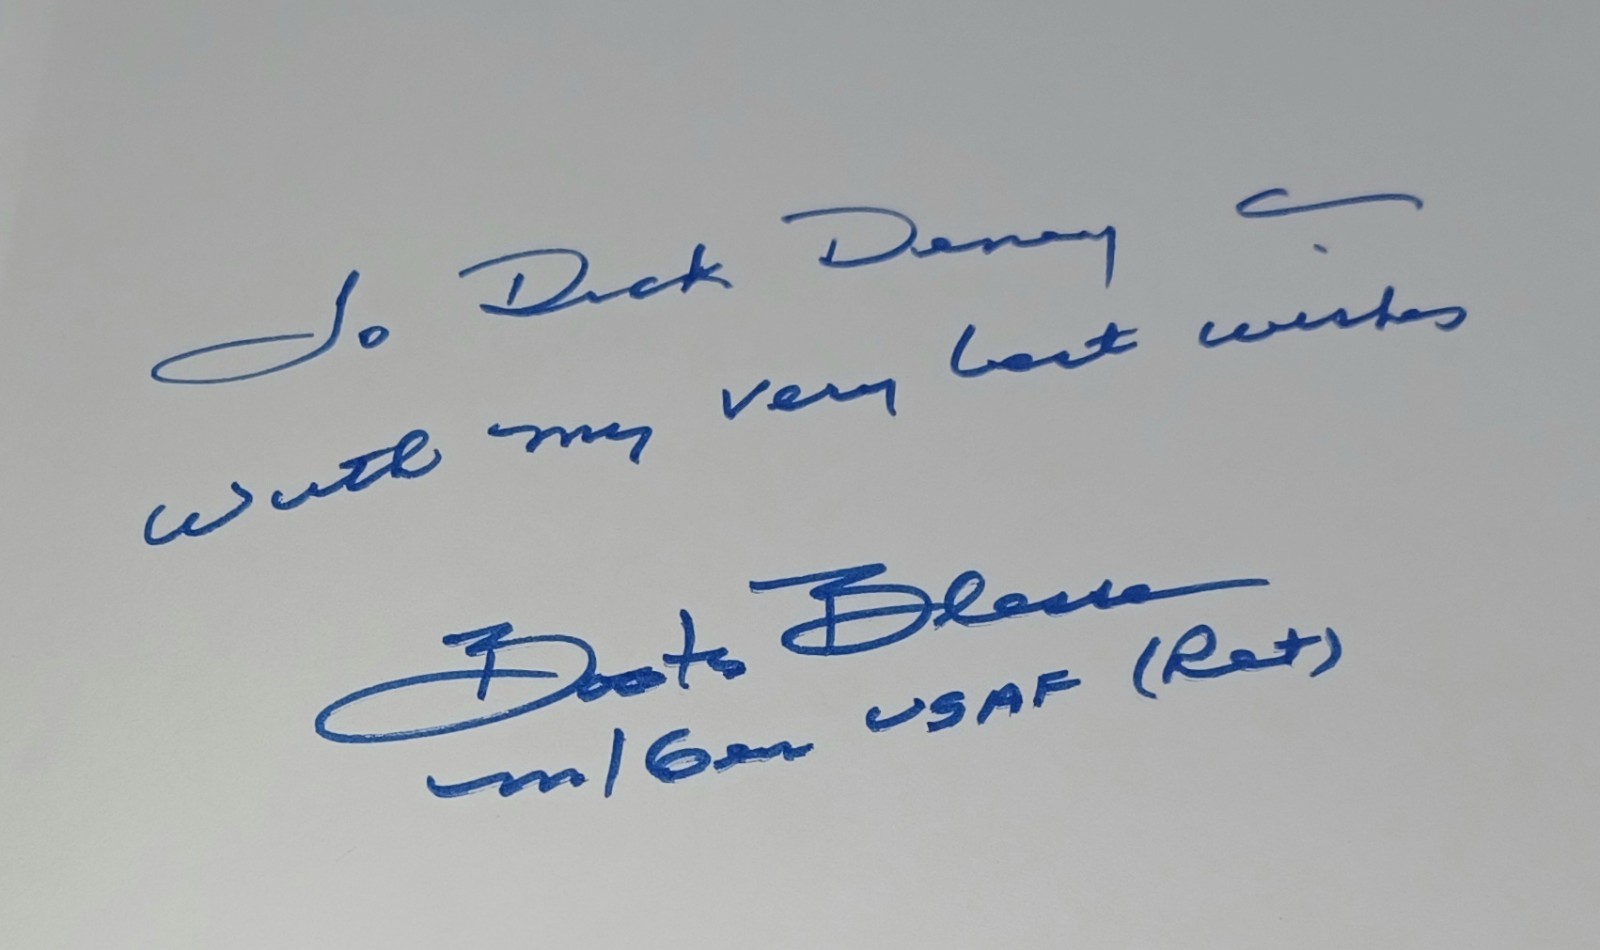 To Dick Denny –
with my very best wishes
Boots Blesse
M/Gen USAF (Ret)